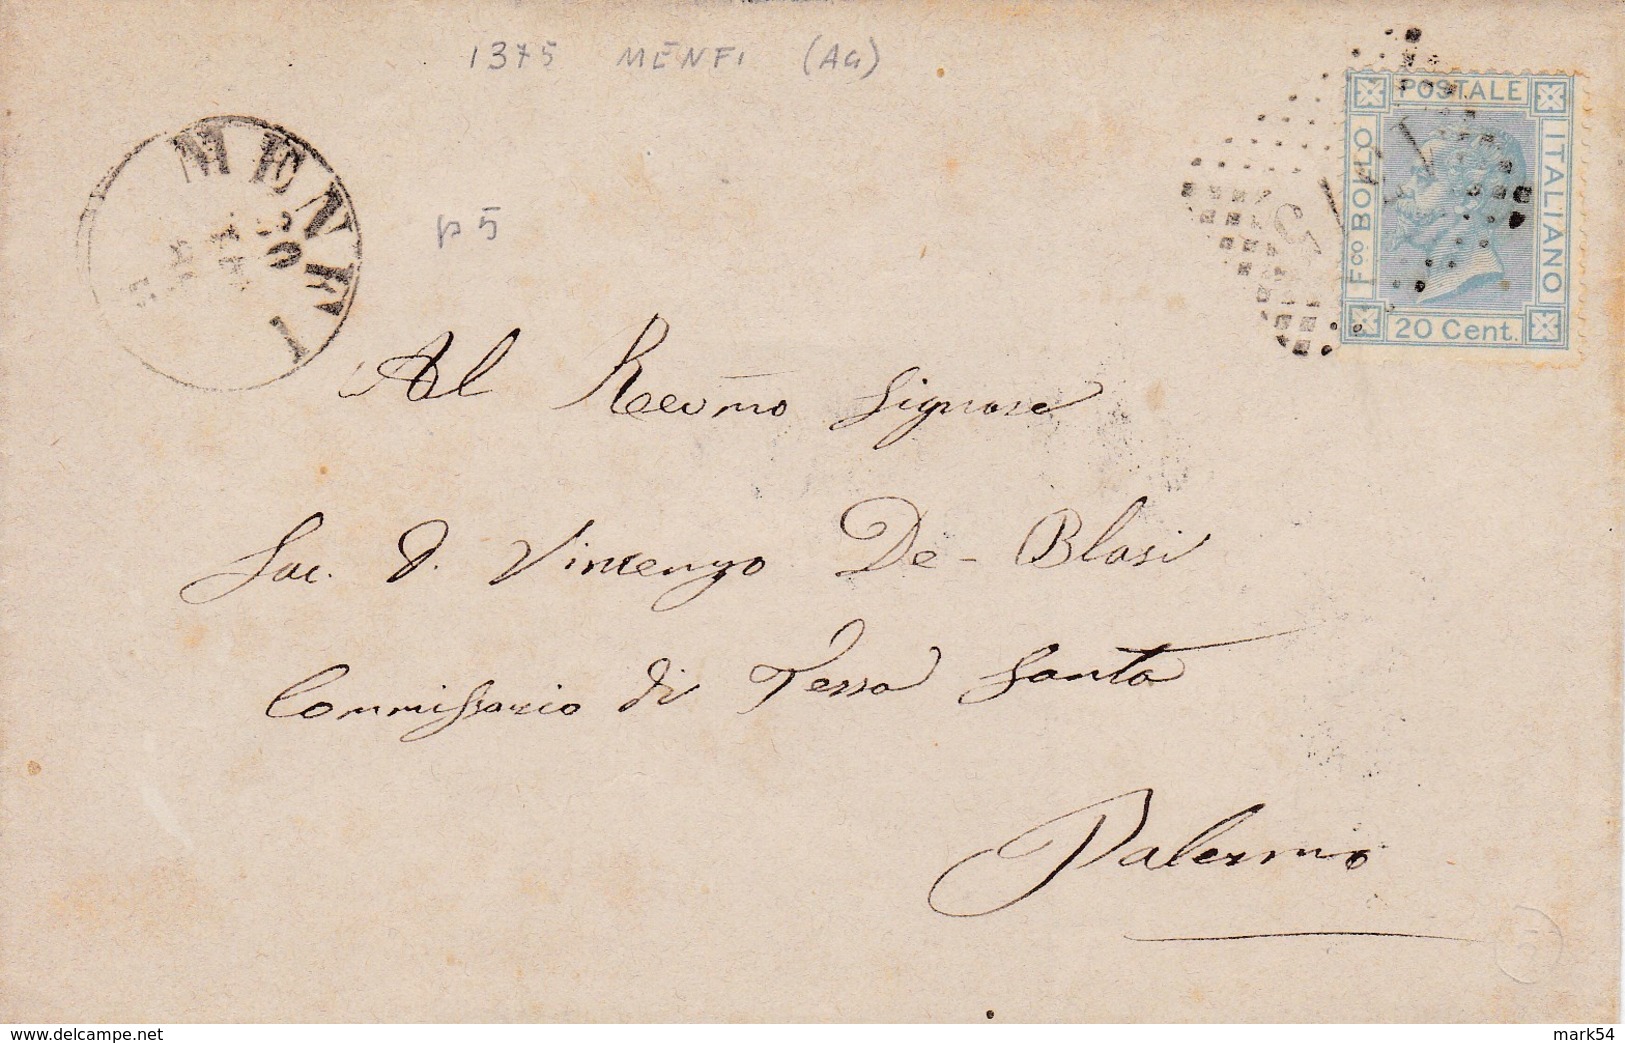 1375 MENFI (AG)
MENFI
p 5
POSTALE
ITALIANO
Fco BOLLO
20 Cent.
Al Revmo Signore
Sac. D. Vincenzo De-Blasi
Commissario di Terra Santa
Palermo
www.delcampe.net
mark54